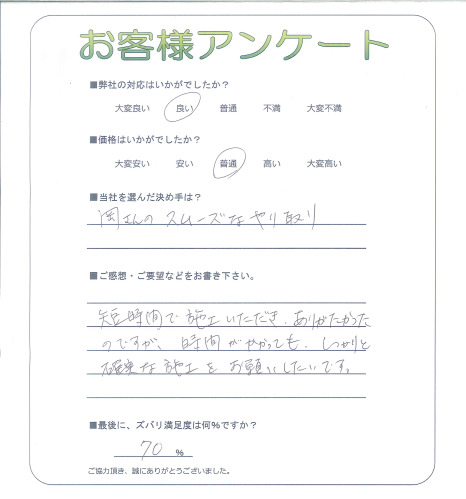 お客様アンケート
■弊社の対応はいかがでしたか？
大変良い 良い 普通 不満 大変不満
■価格はいかがでしたか？
大変安い 安い 普通 高い 大変高い
■当社を選んだ決め手は？
岡さんのスムーズなやり取り
■ご感想・ご要望などをお書き下さい。
短時間で施工いただき、ありがたかった
のですが、時間がかかっても、しっかりと
確実な施工をお願いしたいです。
■最後に、ズバリ満足度は何％ですか？
70 ％
ご協力頂き、誠にありがとうございました。